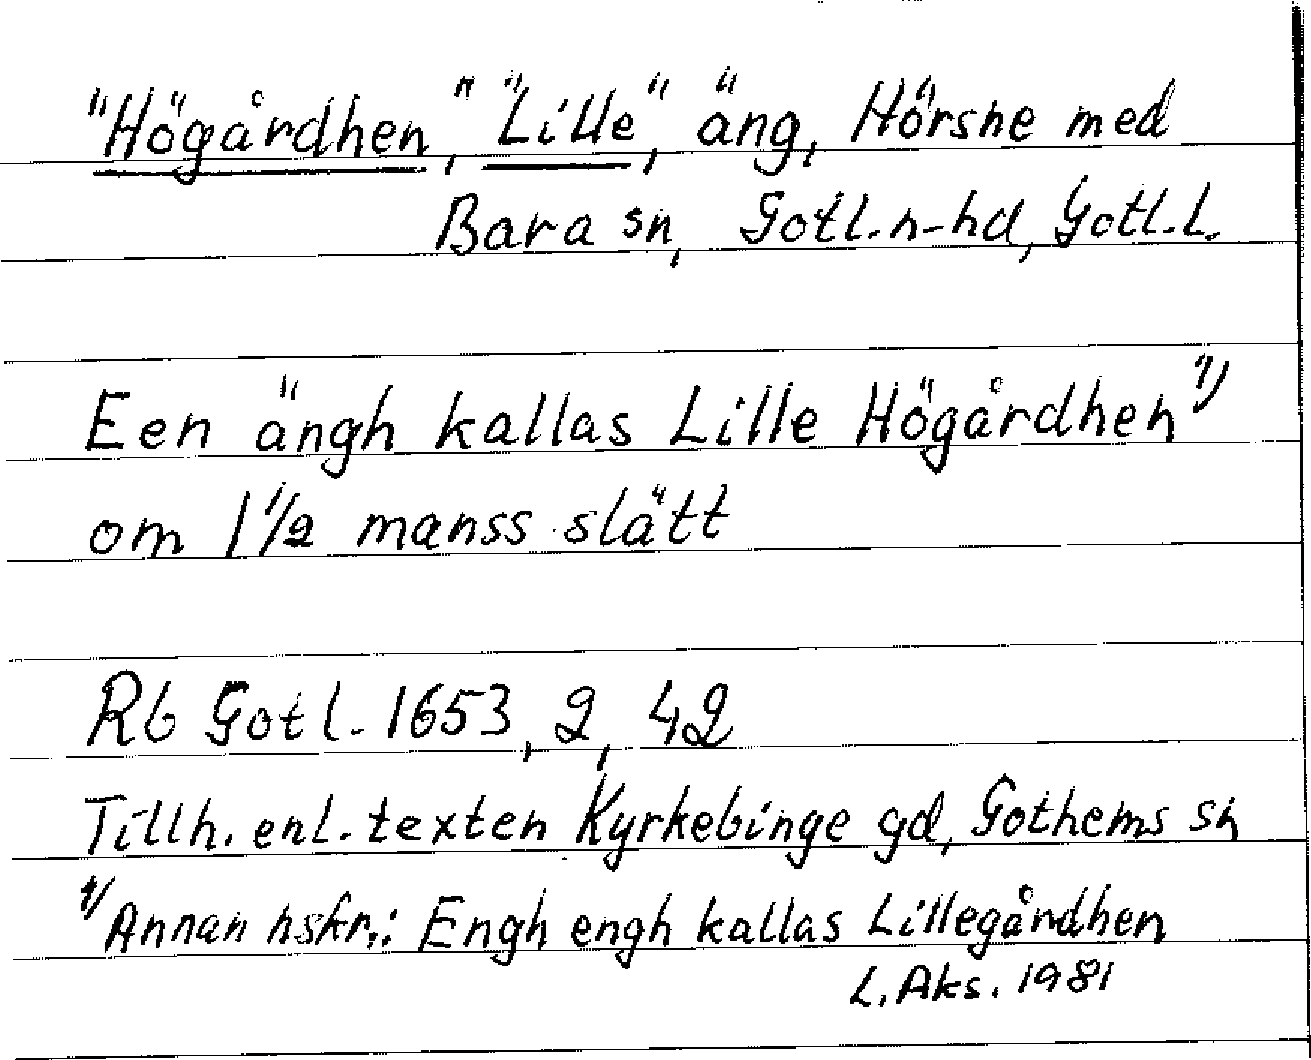 "Högårdhen," "Lille", äng, Hörsne med
Bara sn, Gotl.n-hd, Gotl.l.
Een ängh kallas Lille Högårdhen 1)
om 1 1/2 manss slätt
Rb Gotl. 1653, 2, 42
Tillh. enl. texten Kyrkebinge gd, Gothems sn
1) Annan hskr.: Engh engh kallas Lillegårdhen
L. Aks. 1981